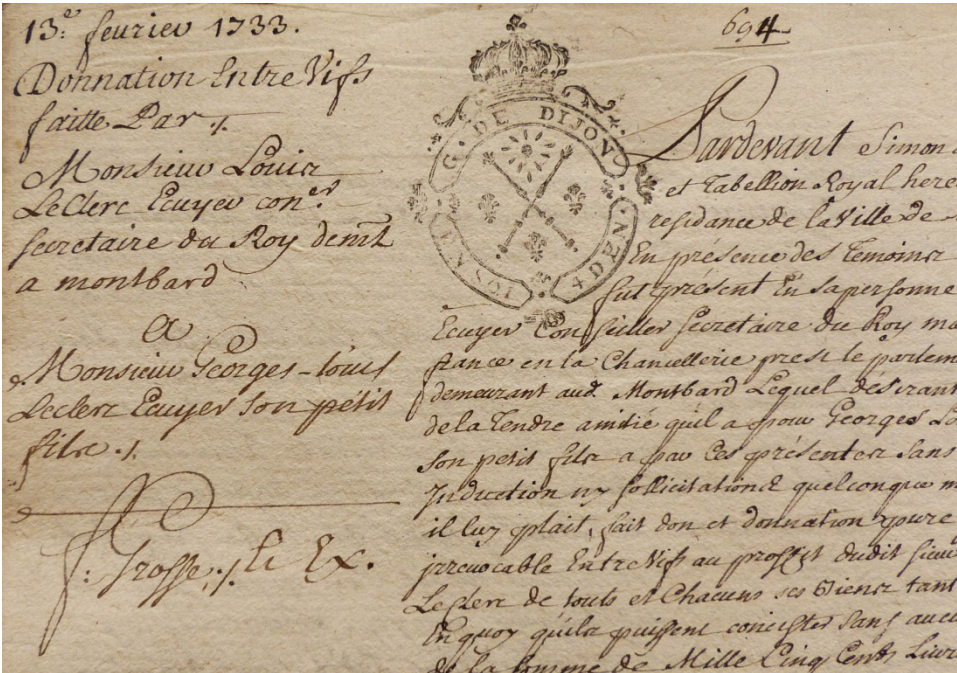 13.e feurier 1733.
Donnation Entre Vifs
faitte Par ./.
Monsieur Louis
LeClerc Ecuyer con.er
secretaire du Roy demt
a montbard
A
Monsieur Georges-Louis
Leclerc Ecuyer son petit
fils ./.
f: Grosse ./. Ex.
694
G. DE DIJON
4 D R N
Pardevant Simon
et Tabellion Royal here
residance de la Ville de
En présence des Temoins
fut présent En sa personne
Ecuyer Conseiller secretaire du Roy ma
france en la Chancellerie prest le parlem
demeurant aud. Montbard Lequel désirant
de la Tendre amitié quil a pour Georges Lo
son petit fils a par Ces présentes sans
Induction ny sollicitation quelconque m
il luy plait, fait don et donnation pure
irreuocable Entre Vifs au proffit dudit sieur
LeClerc de touts et Chacuns ses Biens tant
En quoy quils puissent concister sans aucu
de la somme de Mille Cinq Cents Liur